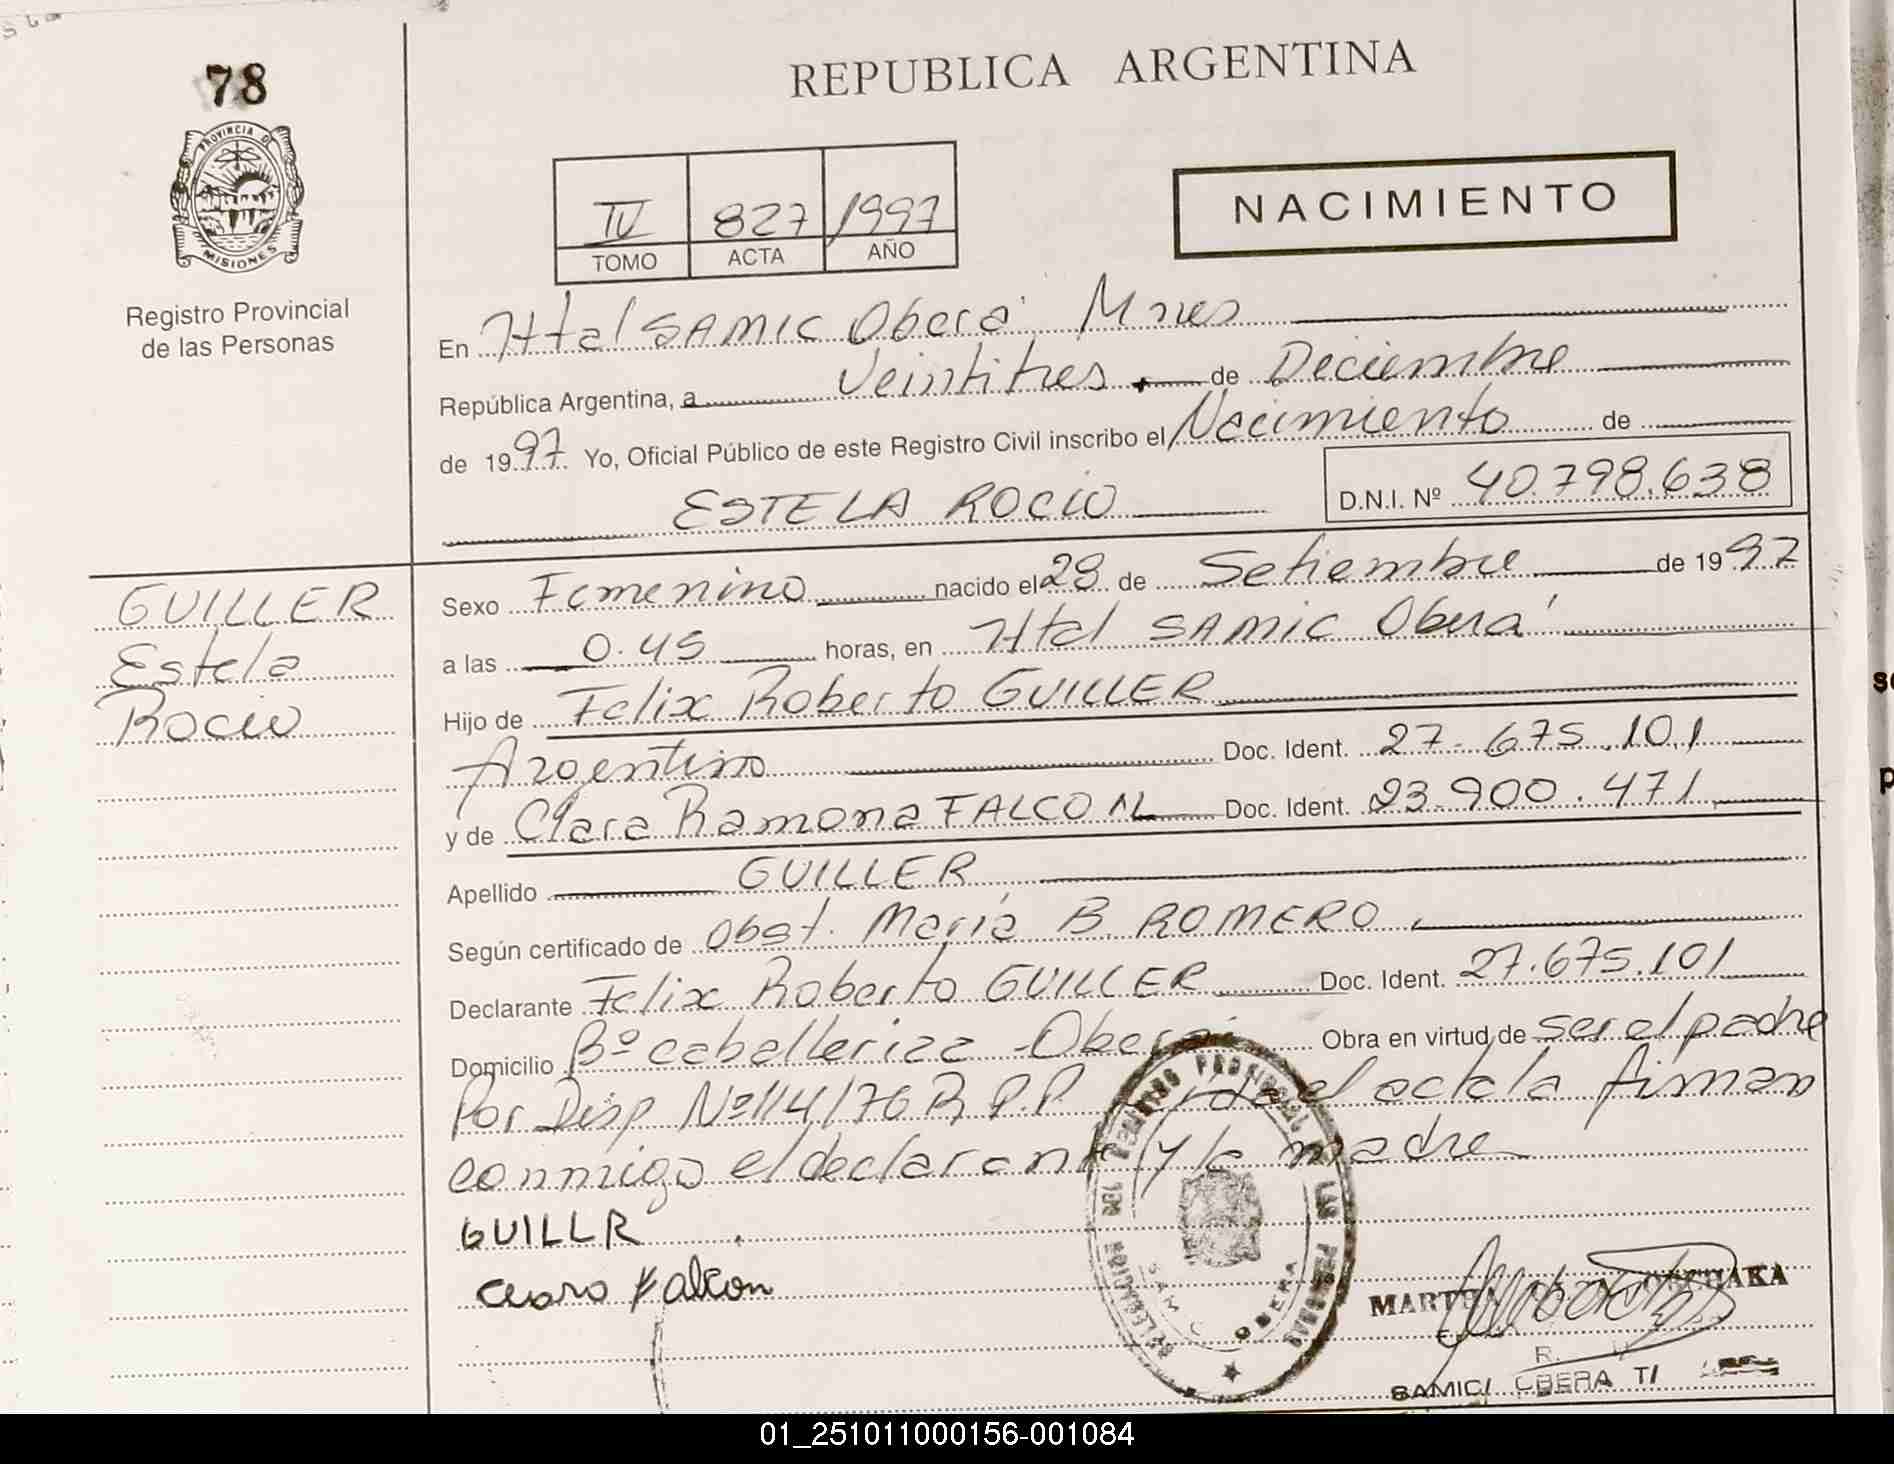 78
REPUBLICA ARGENTINA
PROVINCIA DE
MISIONES
Registro Provincial
de las Personas
IV 827 1997
TOMO ACTA AÑO
NACIMIENTO
En Htal SAMIC Oberá Mnes
República Argentina, a Veintitres de Deciembre
de 1997 Yo, Oficial Público de este Registro Civil inscribo el Nacimiento de
ESTELA ROCIO D.N.I. Nº 40.798.638
GUILLER
Estela
Rocio
Sexo Femenino nacido el 28 de Setiembre de 1997
a las 0.45 horas, en Htal SAMIC Oberá
Hijo de Felix Roberto GUILLER
Argentino Doc. Ident. 27.675.101
y de Clara Ramona FALCON Doc. Ident. 23.900.471
Apellido GUILLER
Según certificado de Obst. María B. ROMERO
Declarante Felix Roberto GUILLER Doc. Ident. 27.675.101
Domicilio Bº caballeriza - Oberá Obra en virtud de ser el padre
Por Disp Nº 114/76 R.P.P. el acta la firman
conmigo el declarante y la madre
GUILLR
Falcon
DELEGACION DEL REGISTRO PROVINCIAL DE LAS PERSONAS
SAMIC OBERA
MARTHA
SAMIC OBERA
01_251011000156-001084